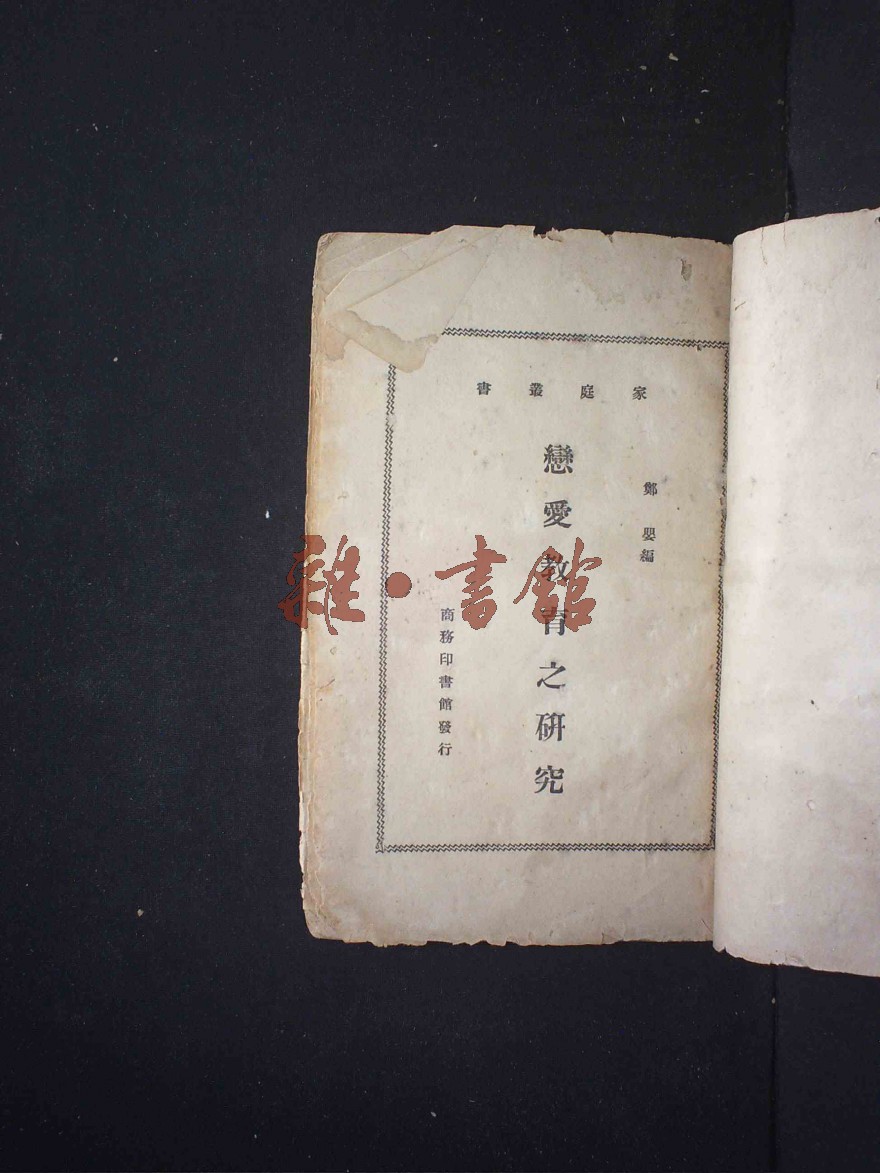 家庭叢書
鄭嬰編
戀愛教育之研究
商務印書館發行
雜·書館